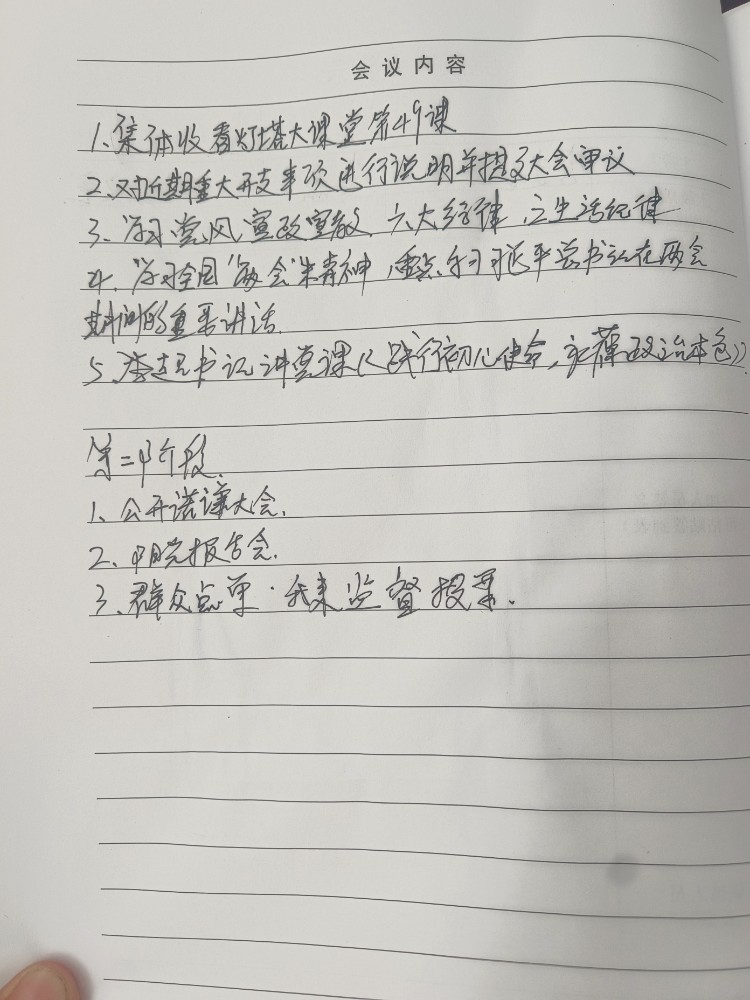 会议内容
1、集体收看灯塔大课堂第49课
2、对近期重大开支事项进行说明并提交大会审议
3、学习党风宣政宣教 六大纪律之生活纪律
4、学习全国"两会"精神,重点学习习近平总书记在两会
期间的重要讲话.
5、书记讲党课《践行初心使命,永葆政治本色》
第二个阶段
1、公开承诺大会.
2、报告会.
3、群众点单·我来监督投票.